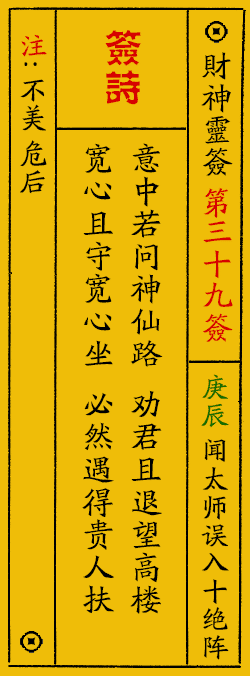 財神靈簽 第三十九簽
庚辰 闻太师误入十绝阵
簽詩
意中若问神仙路 劝君且退望高楼
宽心且守宽心坐 必然遇得贵人扶
注:不美危后